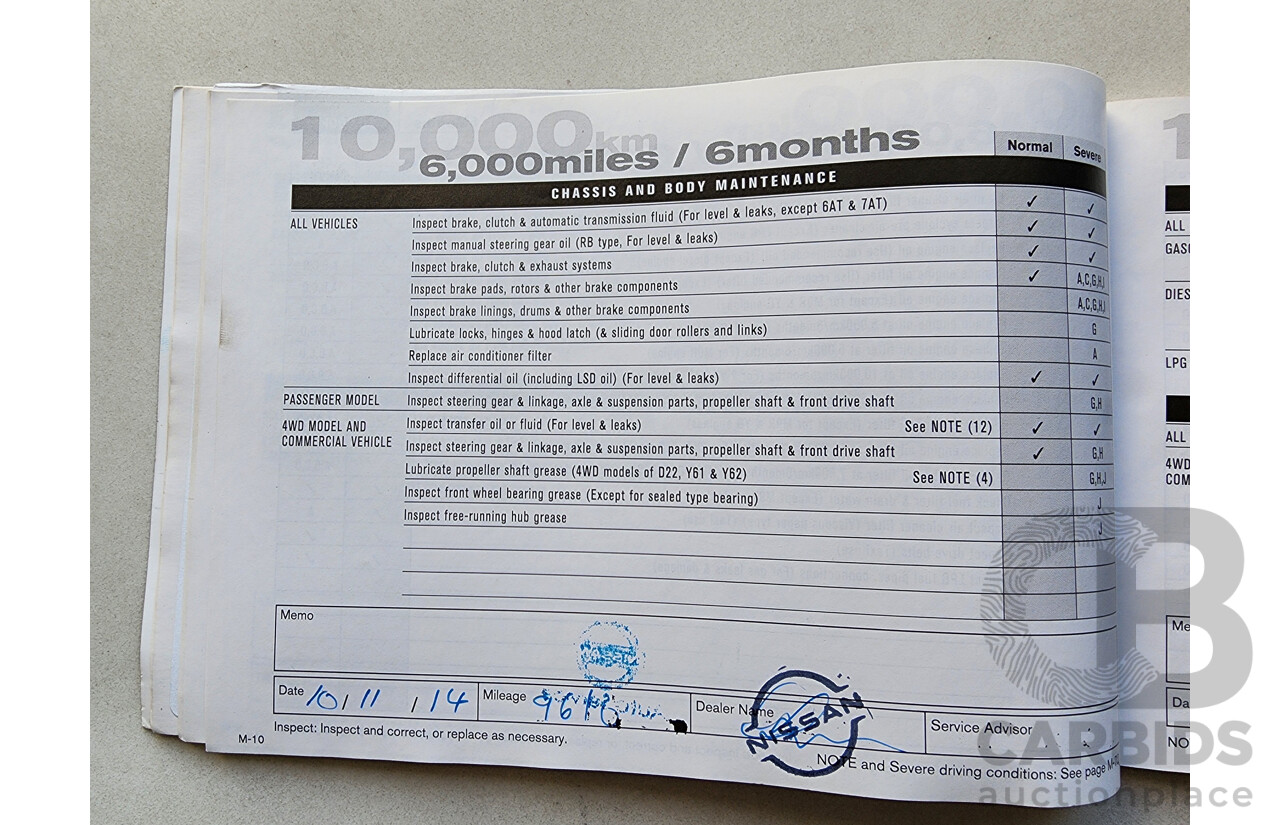 10,000km
6,000miles / 6months
Normal Severe
CHASSIS AND BODY MAINTENANCE
ALL VEHICLES Inspect brake, clutch & automatic transmission fluid (For level & leaks, except 6AT & 7AT) ✓ ✓
Inspect manual steering gear oil (RB type, For level & leaks) ✓ ✓
Inspect brake, clutch & exhaust systems ✓ ✓
Inspect brake pads, rotors & other brake components ✓ A,C,G,H,J
Inspect brake linings, drums & other brake components A,C,G,H,J
Lubricate locks, hinges & hood latch (& sliding door rollers and links) G
Replace air conditioner filter A
Inspect differential oil (including LSD oil) (For level & leaks) ✓ ✓
PASSENGER MODEL Inspect steering gear & linkage, axle & suspension parts, propeller shaft & front drive shaft G,H
4WD MODEL AND Inspect transfer oil or fluid (For level & leaks) See NOTE (12) ✓ ✓
COMMERCIAL VEHICLE Inspect steering gear & linkage, axle & suspension parts, propeller shaft & front drive shaft ✓ G,H
Lubricate propeller shaft grease (4WD models of D22, Y61 & Y62) See NOTE (4) G,H,J
Inspect front wheel bearing grease (Except for sealed type bearing) J
Inspect free-running hub grease J
Memo
Date 10/11/14 Mileage Dealer Name NISSAN Service Advisor
Inspect: Inspect and correct, or replace as necessary.
M-10
NOTE and Severe driving conditions: See page
ALL
GAS
DIES
LPG
ALL
4WD
COM
Me
Da
NO
CB
CARBIDS
auctionplace